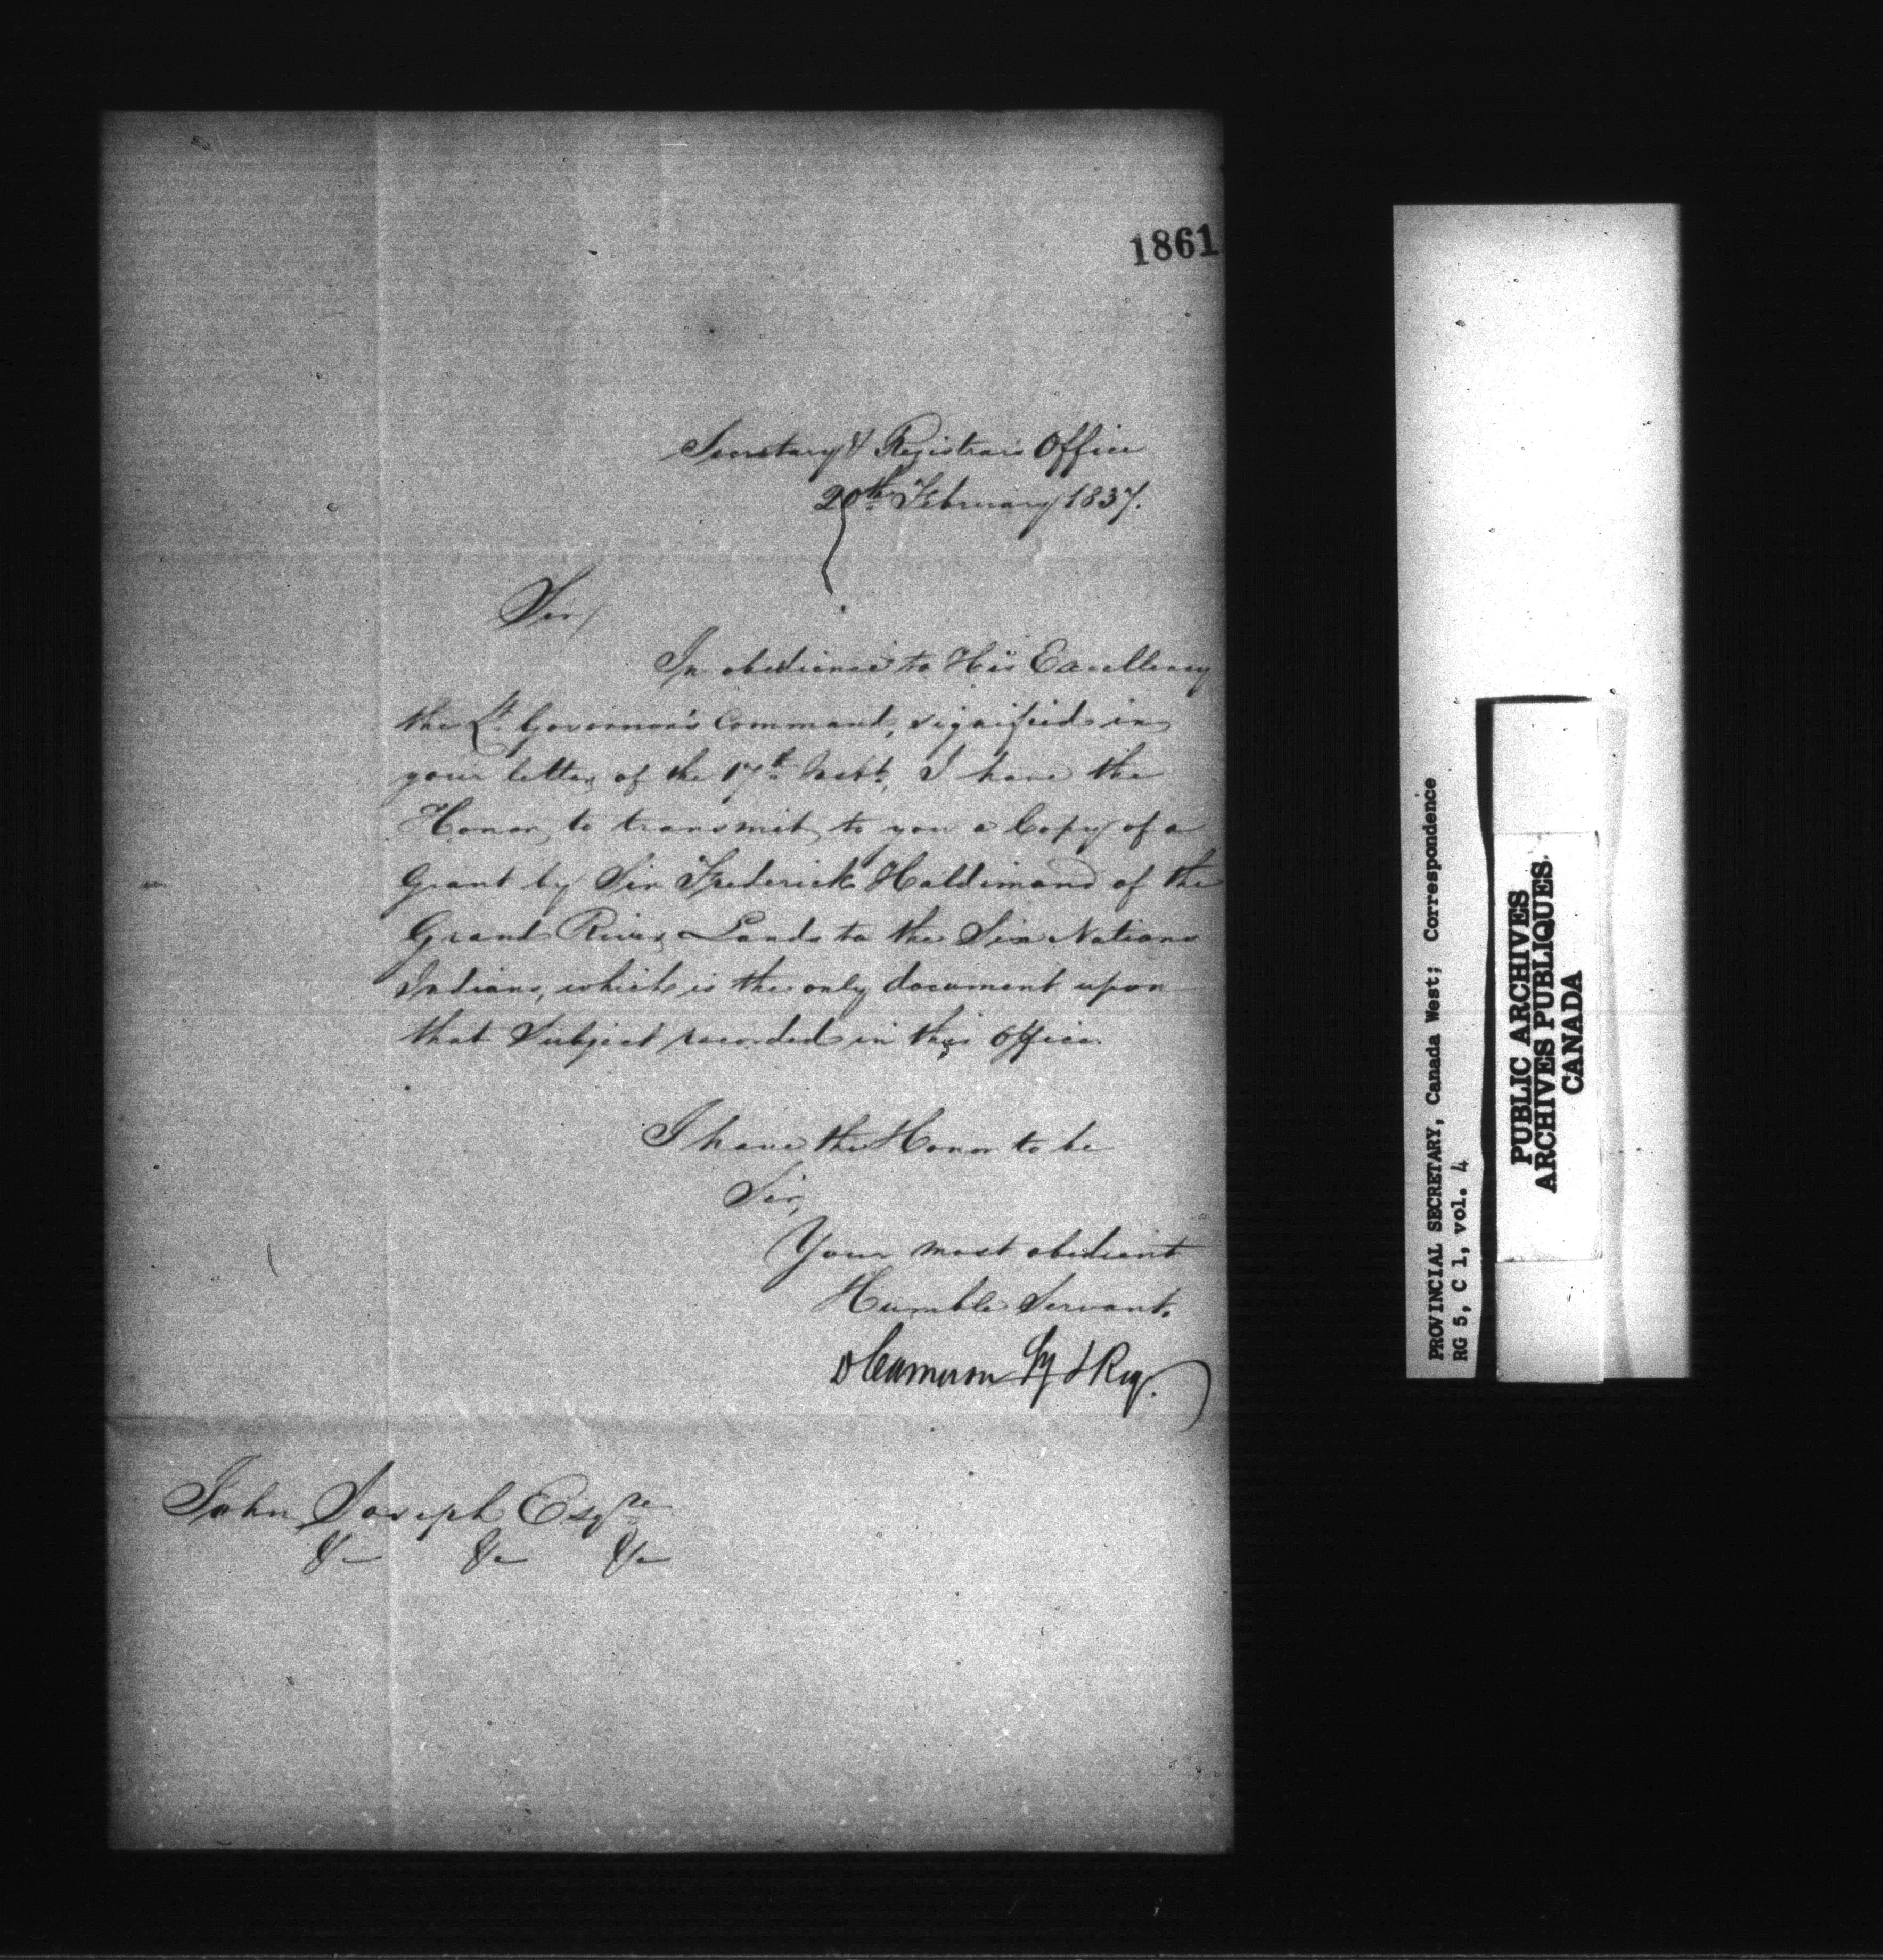 1861
Secretary & Registrar's Office
20th February 1837.
Sir,
In obedience to His Excellency
the Lt. Governor's Command, signified in
your letter of the 17th Inst, I have the
Honor to transmit to you a Copy of a
Grant by Sir Frederick Haldimand of the
Grand River Lands to the Six Nations
Indians, which is the only document upon
that Subject recorded in this Office.
I have the Honor to be
Sir,
Your most obedient
Humble Servant.
D Cameron Sy & Reg.
John Joseph Esqre
&c &c &c
PROVINCIAL SECRETARY, Canada West; Correspondence
RG 5, C 1, vol. 4
PUBLIC ARCHIVES
ARCHIVES PUBLIQUES
CANADA